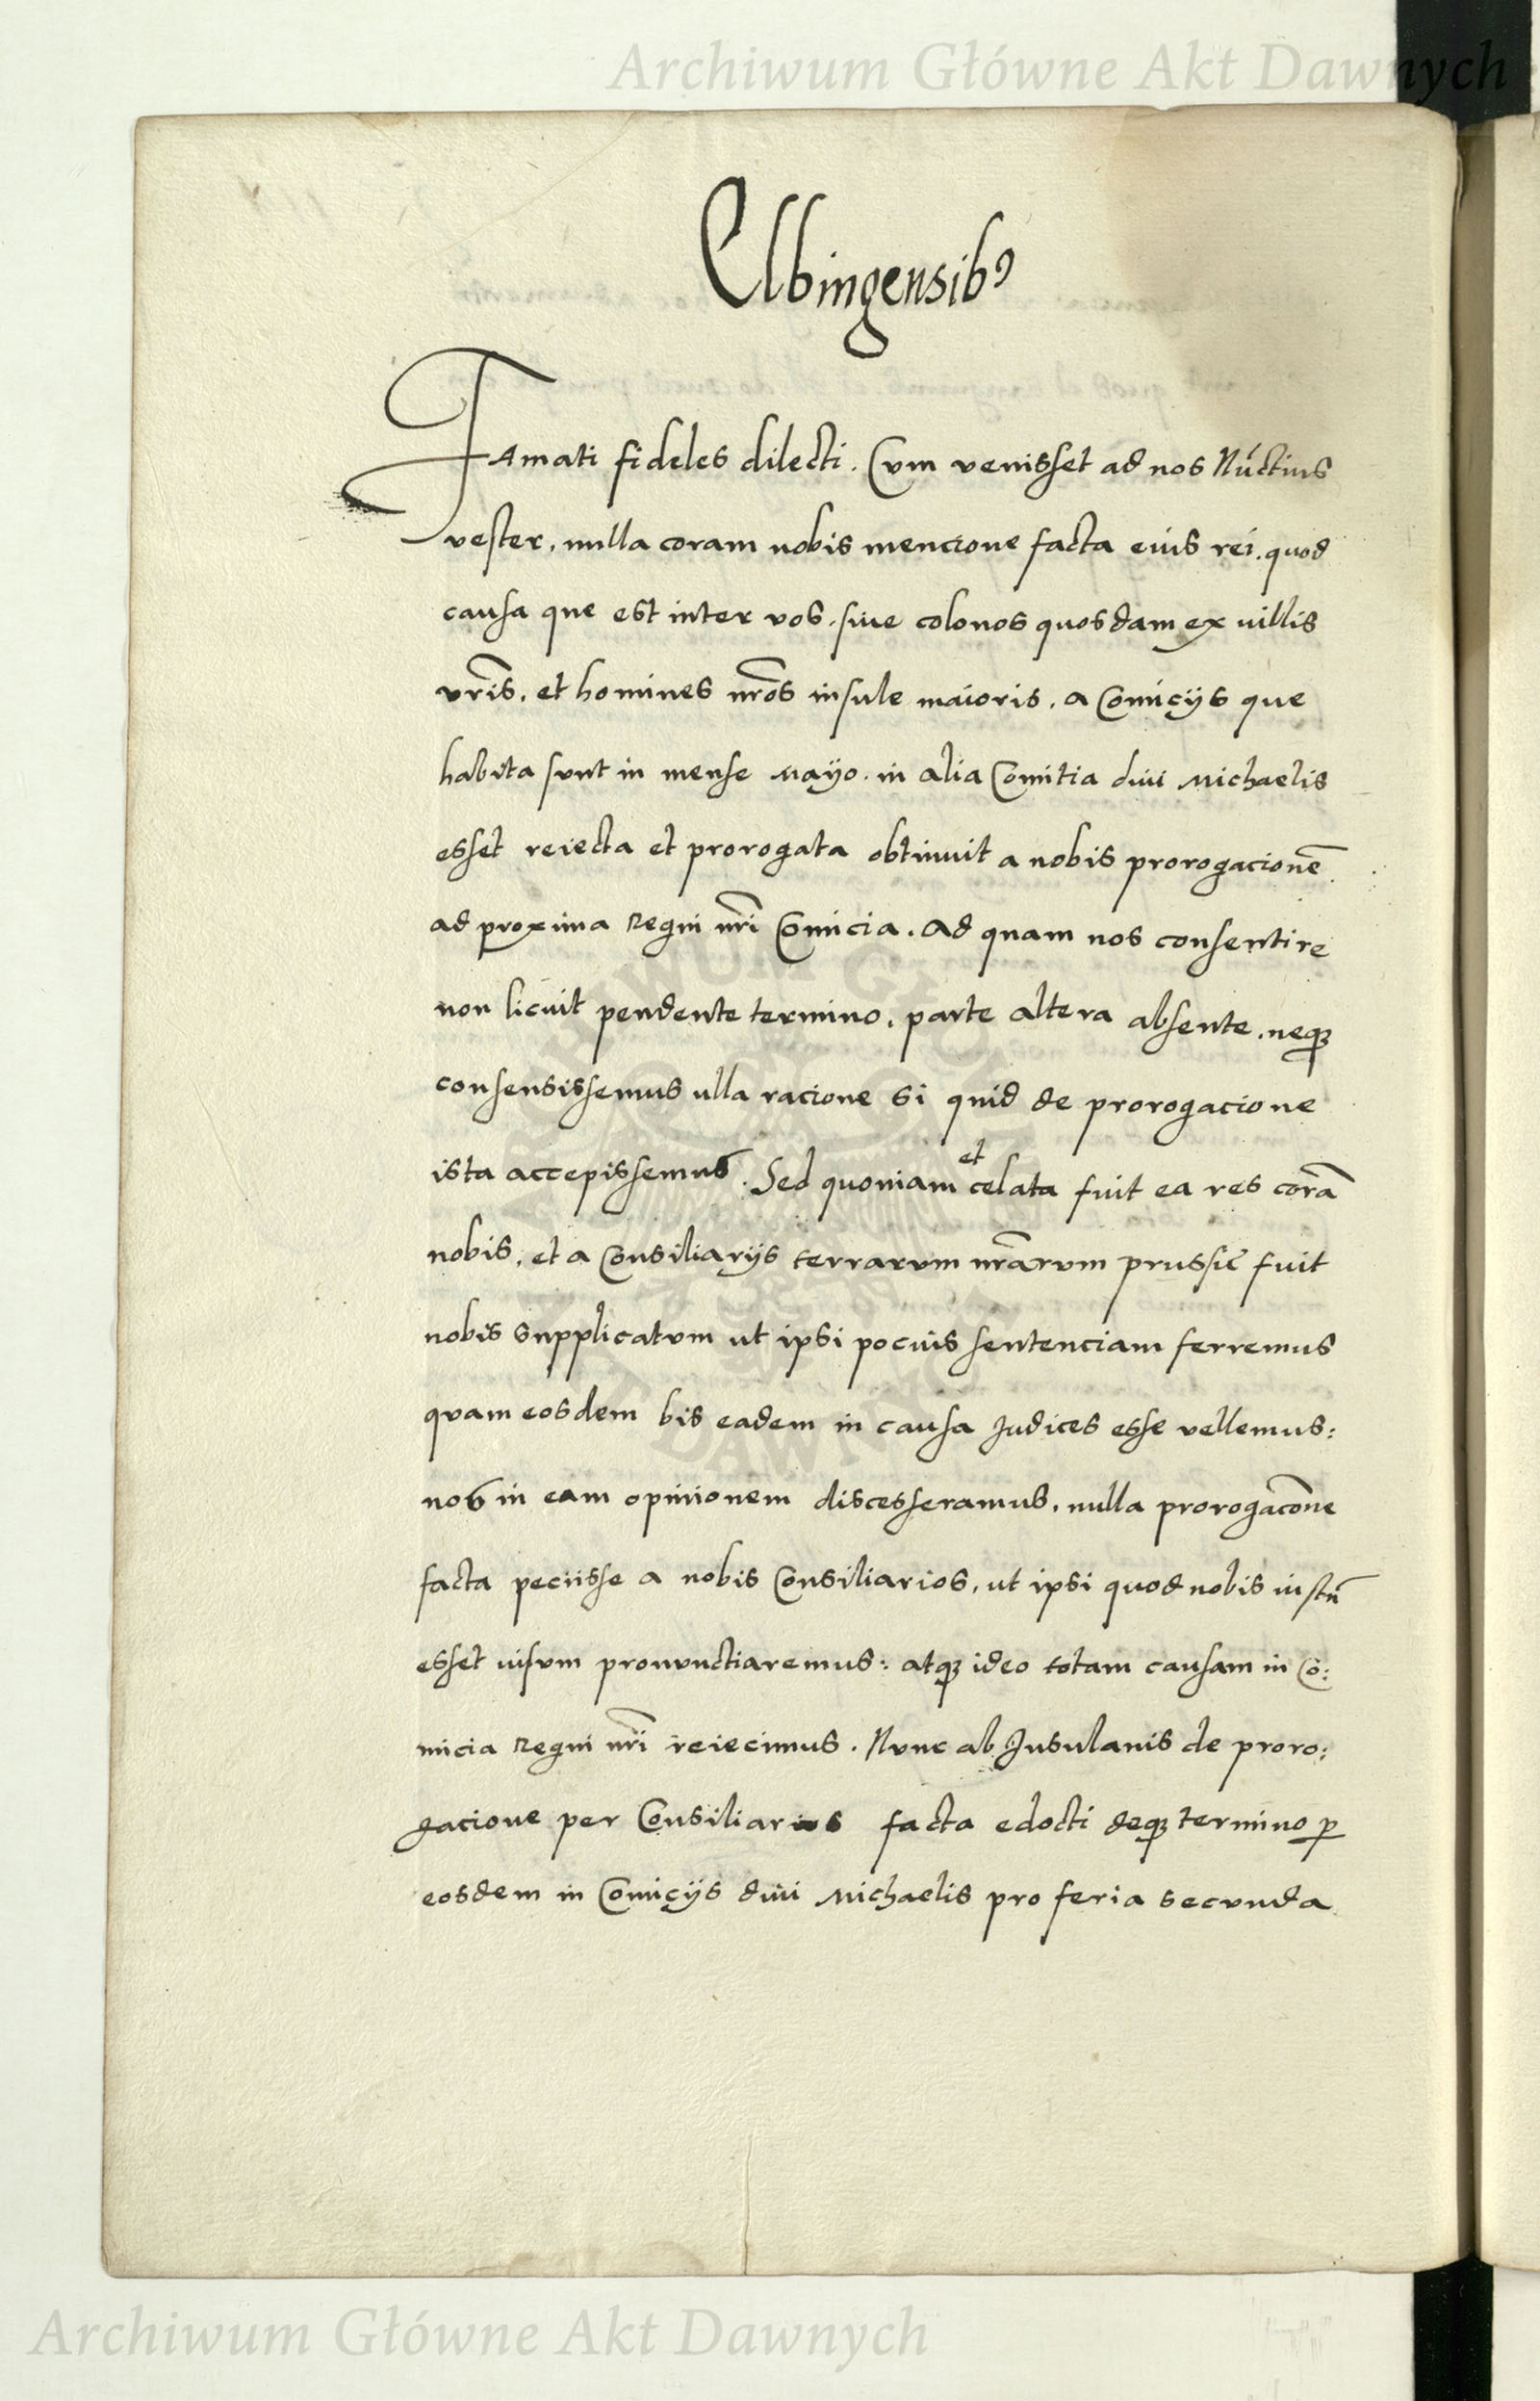 Archiwum Główne Akt Dawnych
Elbingensibꝰ
Famati fideles dilecti. Cum venisset ad nos Núctius
vester, nulla coram nobis mencione facta eius rei. quod
causa que est inter vos. siue colonos quosdam ex villis
vr̃is. et homines nr̃os insule maioris. a Comicijs que
habita sunt in mense Mayo. in alia Comitia diui Michaelis
esset reiecta et prorogata obtinuit a nobis prorogacionẽ
ad proxima Regni nr̃i Comicia. Ad quam nos consentire
non licuit pendente termino. parte altera absente. neqꝫ
consensissemus ulla racione si quid de prorogacione
ista accepissemus. Sed quoniam et celata fuit ea res corã
nobis. et a Consiliarijs terrarum nr̃arum prussiẽ fuit
nobis supplicatum ut ipsi pocius sentenciam ferremus
quam eosdem bis eadem in causa Judices esse vellemus:
nos in eam opinionem discesseramus. nulla prorogac̃one
facta peciisse a nobis Consiliarios, ut ipsi quod nobis iustũ
esset uisum pronunctiaremus: atqꝫ ideo totam causam in Cõ:
micia Regni nr̃i reiecimus. Nunc ab Insulanis de proro:
gacione per Consiliarios facta edocti deqꝫ termino ꝑ
eosdem in Comicijs diui Michaelis pro feria secunda
Archiwum Główne Akt Dawnych